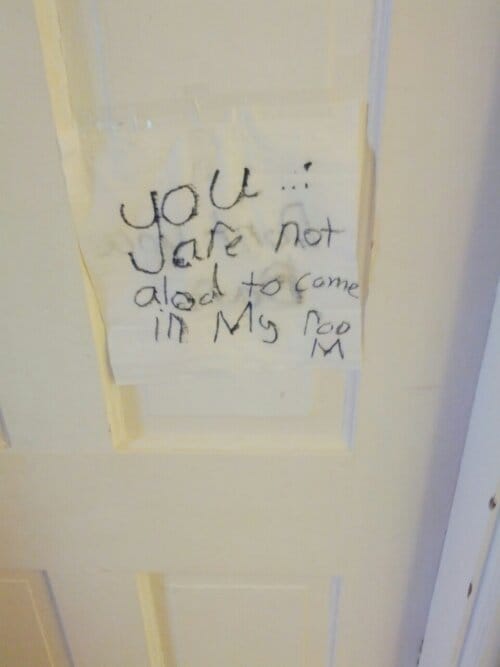 you ...
are not
alod to come
in My roo
M